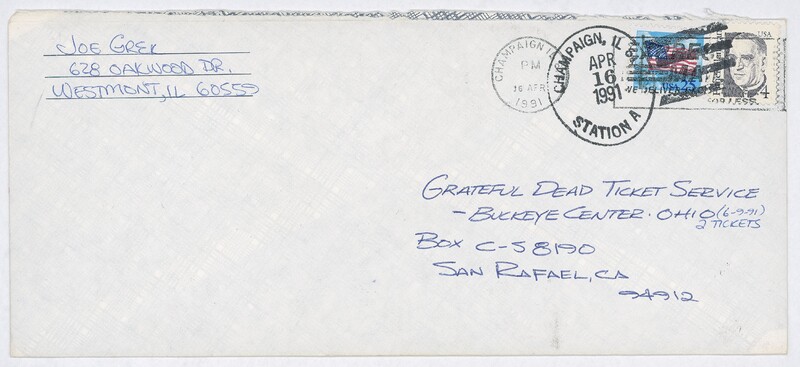 JOE GREK
628 OAKWOOD DR.
WESTMONT, IL 60559
CHAMPAIGN
PM
16 APR
1991
CHAMPAIGN, IL
APR
16
1991
STATION A
25
USA
4
GRATEFUL DEAD TICKET SERVICE
- BUCKEYE CENTER · OHIO (6-9-91)
2 TICKETS
BOX C-S 8190
SAN RAFAEL, CA
94912